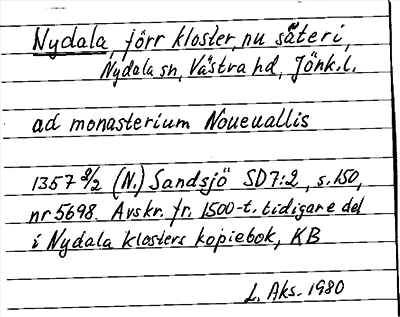 Nydala, förr kloster, nu säteri,
Nydala sn, Västra hd, Jönk.l.
ad monasterium Noueuallis
1357 8/2 (N.) Sandsjö SD7:2, s.150,
nr 5698. Avskr. fr. 1500-t. tidigare del
i Nydala klosters kopiebok, KB
L. Aks. 1980